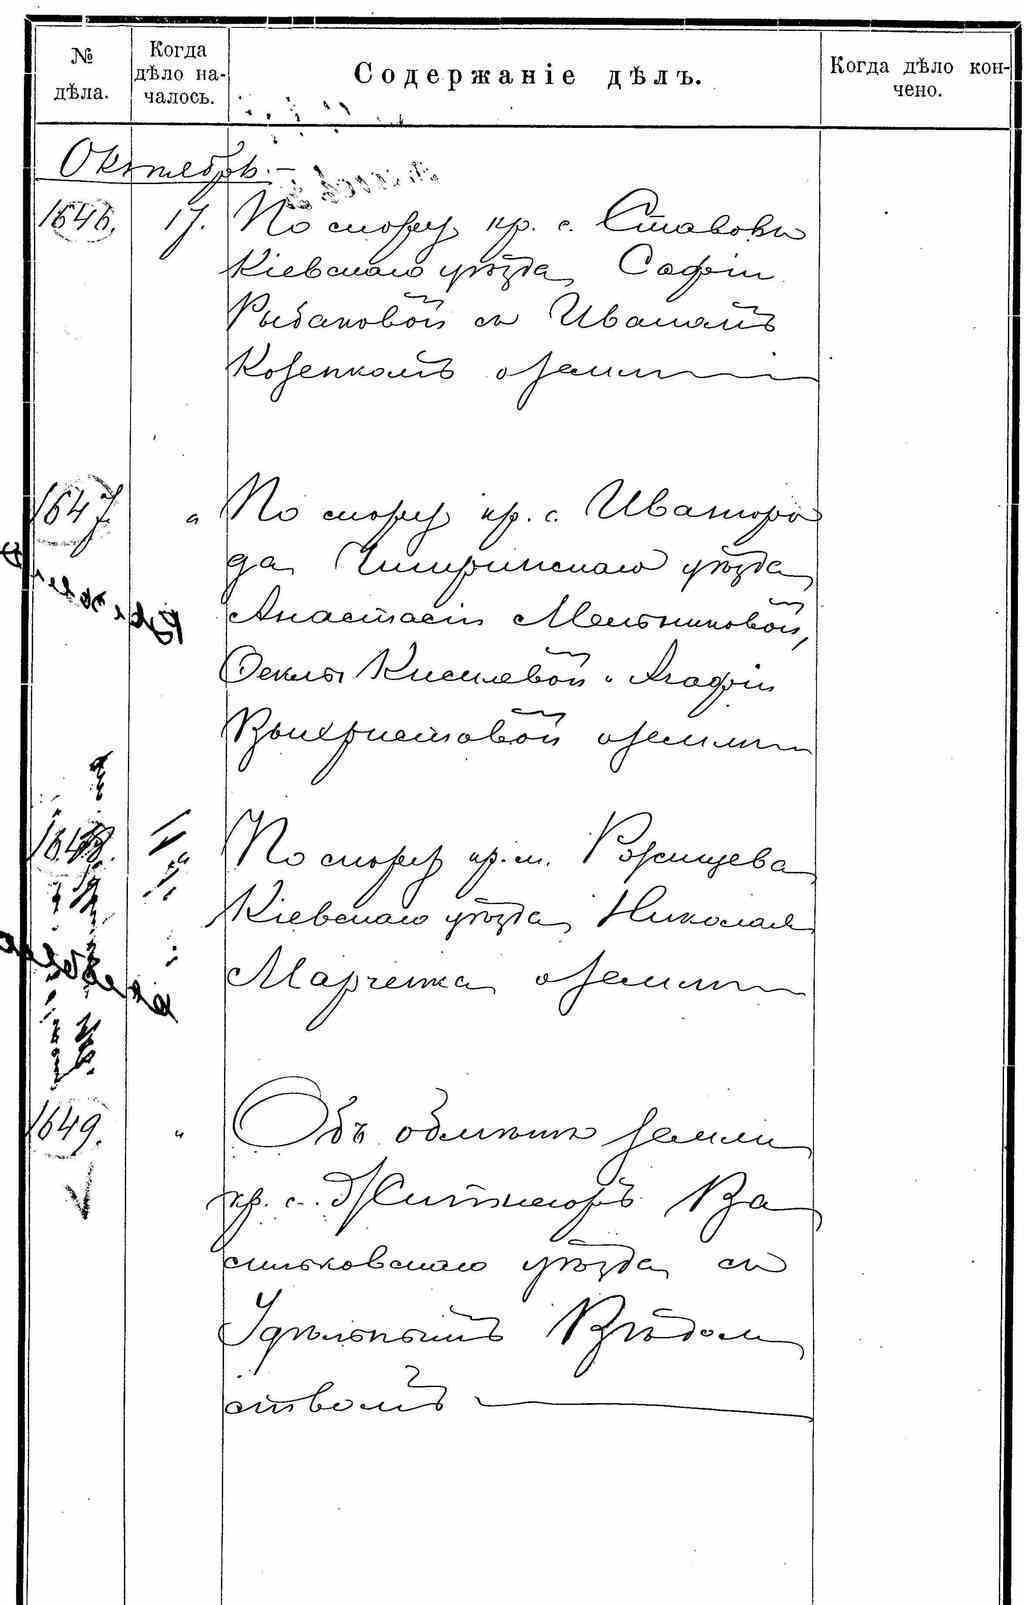 № дѣла.
Когда дѣло на-
чалось.
Содержаніе дѣлъ.
Когда дѣло кон-
чено.
Октябрь. –
1646. 17. По спору кр. с. Ставокъ
Кіевскаго уѣзда Софіи
Рыбаковой съ Иваномъ
Козенкомъ о земли
1647. " По спору кр. с. Ивангоро
да Чигиринскаго уѣзда
Анастасіи Мельниковой,
Феклы Киселевой и Агафіи
Выхристовой о земли
1648. " По спору кр. м. Рожищева
Кіевскаго уѣзда Николая
Марченка о земли
1649. " Объ обмѣнѣ земли
кр. с. Житнегоръ Ва
сильковскаго уѣзда съ
Удѣльнымъ Вѣдом
ствомъ